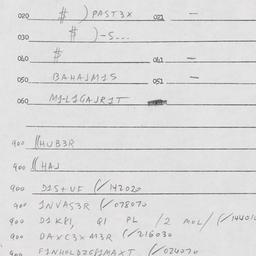 020 # ) PAST3X 021 —
030 # ) -S...
040 # 041 —
050 BAHAJM1S 051 —
060 M1-L1GAJR1T
900 ((HUB3R
900 ((HAJ
900 D1S+UF (✓142020
900 JNVAS3R (✓078070
900 D1K81, Q1 PL /2 MOL/ (✓14401
900 DAXC3X M3R (✓216030
900 (✓024070